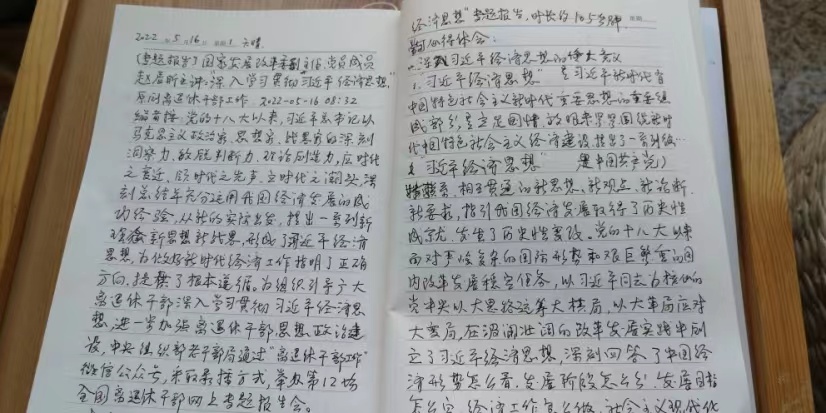 2022年5月16日 星期1 天晴
(专题报告)国家发展改革委副主任、党员成员
赵辰昕主讲:"深入学习贯彻习近平经济思想"
原创离退休干部工作 2022-05-16 08:32
编者按:党的十八大以来,习近平总书记以
马克思主义政治家、思想家、战略家的深刻
洞察力、敏锐判断力、理论创造力,应时代
之变迁、领时代之先声、立时代之潮头,深
刻总结并充分运用我国经济发展的成
功经验,从新的实际出发,提出一系列新
理念新思想新战略,形成了习近平经济
思想,为做好新时代经济工作指明了正确
方向,提供了根本遵循。为组织引导广大
离退休干部深入学习贯彻习近平经济思
想,进一步加强离退休干部思想政治建
设,中央组织部老干部局通过"离退休干部工作"
微信公众号,采取录播方式,举办第12场
全国离退休干部网上专题报告会。
经济思想"专题报告,时长约105分钟
心得体会:
一、深刻习近平经济思想的重大意义
1.习近平经济思想"是习近平新时代有
中国特色社会主义新时代重要思想的重要组
成部分,是立足国情,放眼世界围绕新时
代中国特色社会主义经济建设,提出了一系列…
2.习近平经济思想"是中国共产党)
相互贯通的新思想、新观点、新论断、
新要求,指引我国经济发展取得了历史性
成就、发生了历史性变改。党的十八大以来
面对严峻复杂的国际形势和艰巨繁重的国
内改革发展稳定任务,以习近平同志为核心的
党中央以大思路统筹大棋局,以大布局应对
大变局,在波澜壮阔的改革发展实践中创
立了习近平经济思想,深刻回答了中国经
济形势怎么看、发展阶段怎么分、发展目标
怎么定、经济工作怎么做、社会主义现代化